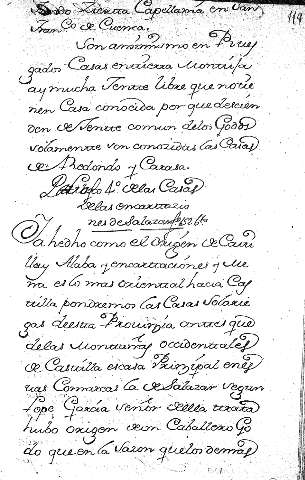 Capellania, en San
Fran.co de Cuenca.
Son asimismo en Rues
gados Casas en tierra Montesa
ay mucha Jente libre que no tie
nen Casa conocida por que descien
den de Jente comun de los Godos
solamente son conozidas las Casas
de Redondo y Carasa.
4.º de las Casas
de las encartazio
nes de Salazar
Ya hedho como el origen de Cast
illa y Alaba y encartaciones y Me
na es lo mas oriental hacia Cas
tilla pondremos las Casas Solarie
gas de esta Provinzia antes que
de las Montañas occidentales
de Castilla es casa Prinzipal en es
tas Comarcas la de Salazar segun
Lope Garcia senor de ella trata
hubo origen de un Caballero Go
do que en la sazon que los demas